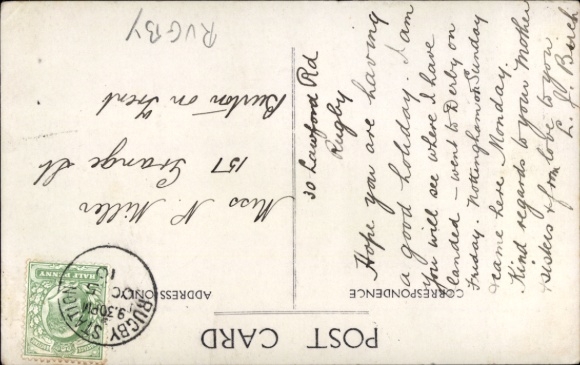 POST CARD
CORRESPONDENCE
ADDRESS ONLY
30 Lawford Rd
Rugby
Hope you are having
a good holiday. I am
you will see where I have
landed – went to Derby on
Friday. Nottingham on Sunday
& came here Monday.
Kind regards to your Mother
& sisters & fon love to you
L. J. Birch
Miss N. Miller
157 Grange St
Burton on
Trent
RUGBY
RUGBY STATION
9.30PM
OC 5
10
HALF PENNY